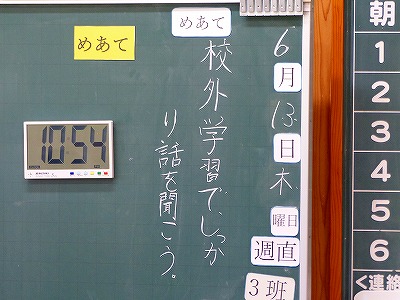 朝
1
2
3
4
5
6
<連絡
6月13日木曜日
週直
3班
めあて
校外学習で、しっか
り話を聞こう。
めあて
10:54